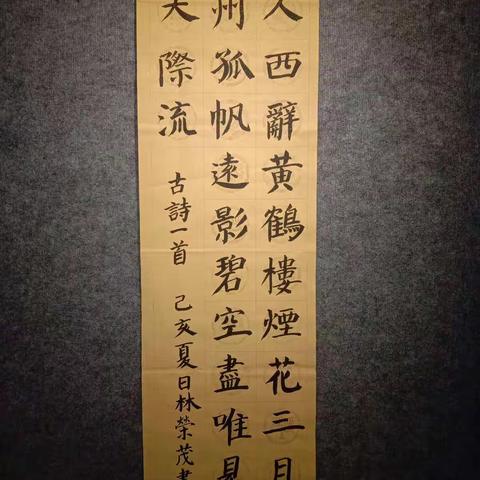 人西辭黄鶴樓煙花三月
州孤帆遠影碧空盡唯見
天際流
古詩一首 己亥夏日林榮茂書